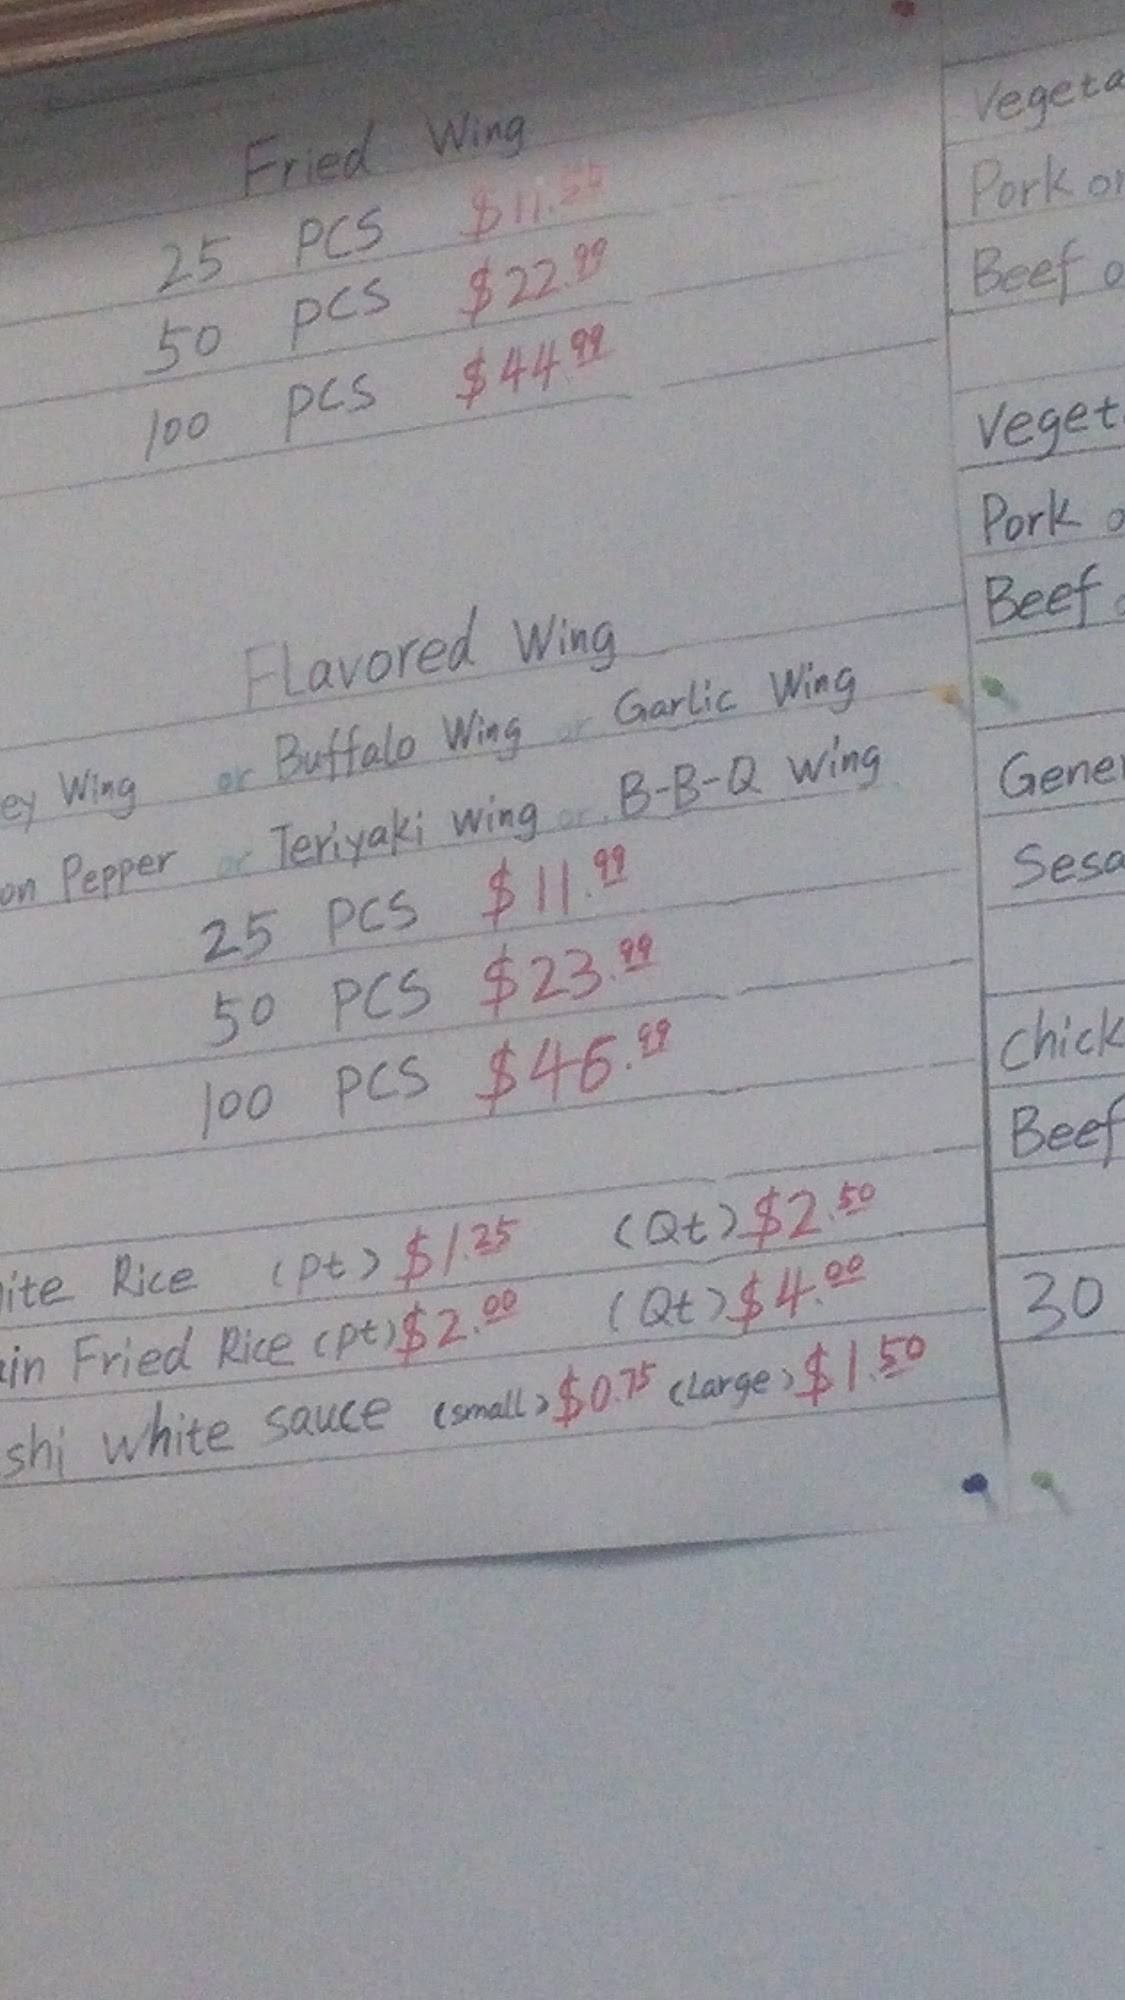 Fried Wing
25 PCS $11.50
50 PCS $22.99
100 PCS $44.99
Flavored Wing
ey Wing or Buffalo Wing or Garlic Wing
on Pepper or Teriyaki Wing or B-B-Q Wing
25 PCS $11.99
50 PCS $23.99
100 PCS $46.99
ite Rice (pt) $1.25 (Qt) $2.50
in Fried Rice (pt) $2.00 (Qt) $4.00
shi white sauce (small) $0.75 (Large) $1.50
Vegeta
Pork or
Beef o
Veget
Pork o
Beef
Gener
Sesa
Chick
Beef
30